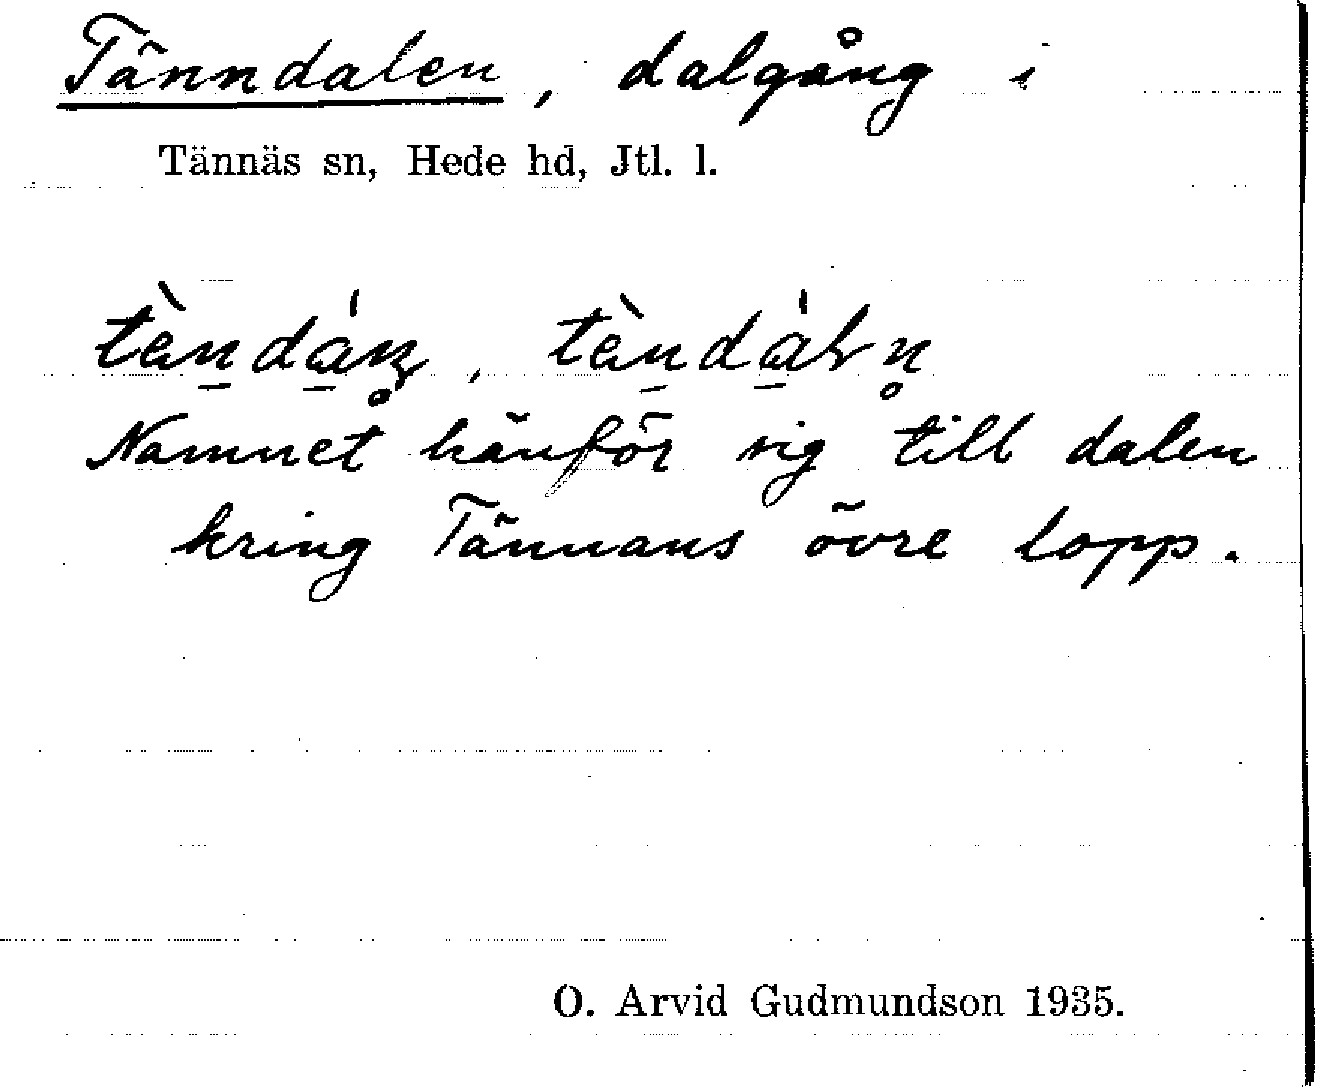 Tänndalen, dalgång i
Tännäs sn, Hede hd, Jtl. l.
Namnet hänför sig till dalen
kring Tännans övre lopp.
O. Arvid Gudmundson 1935.